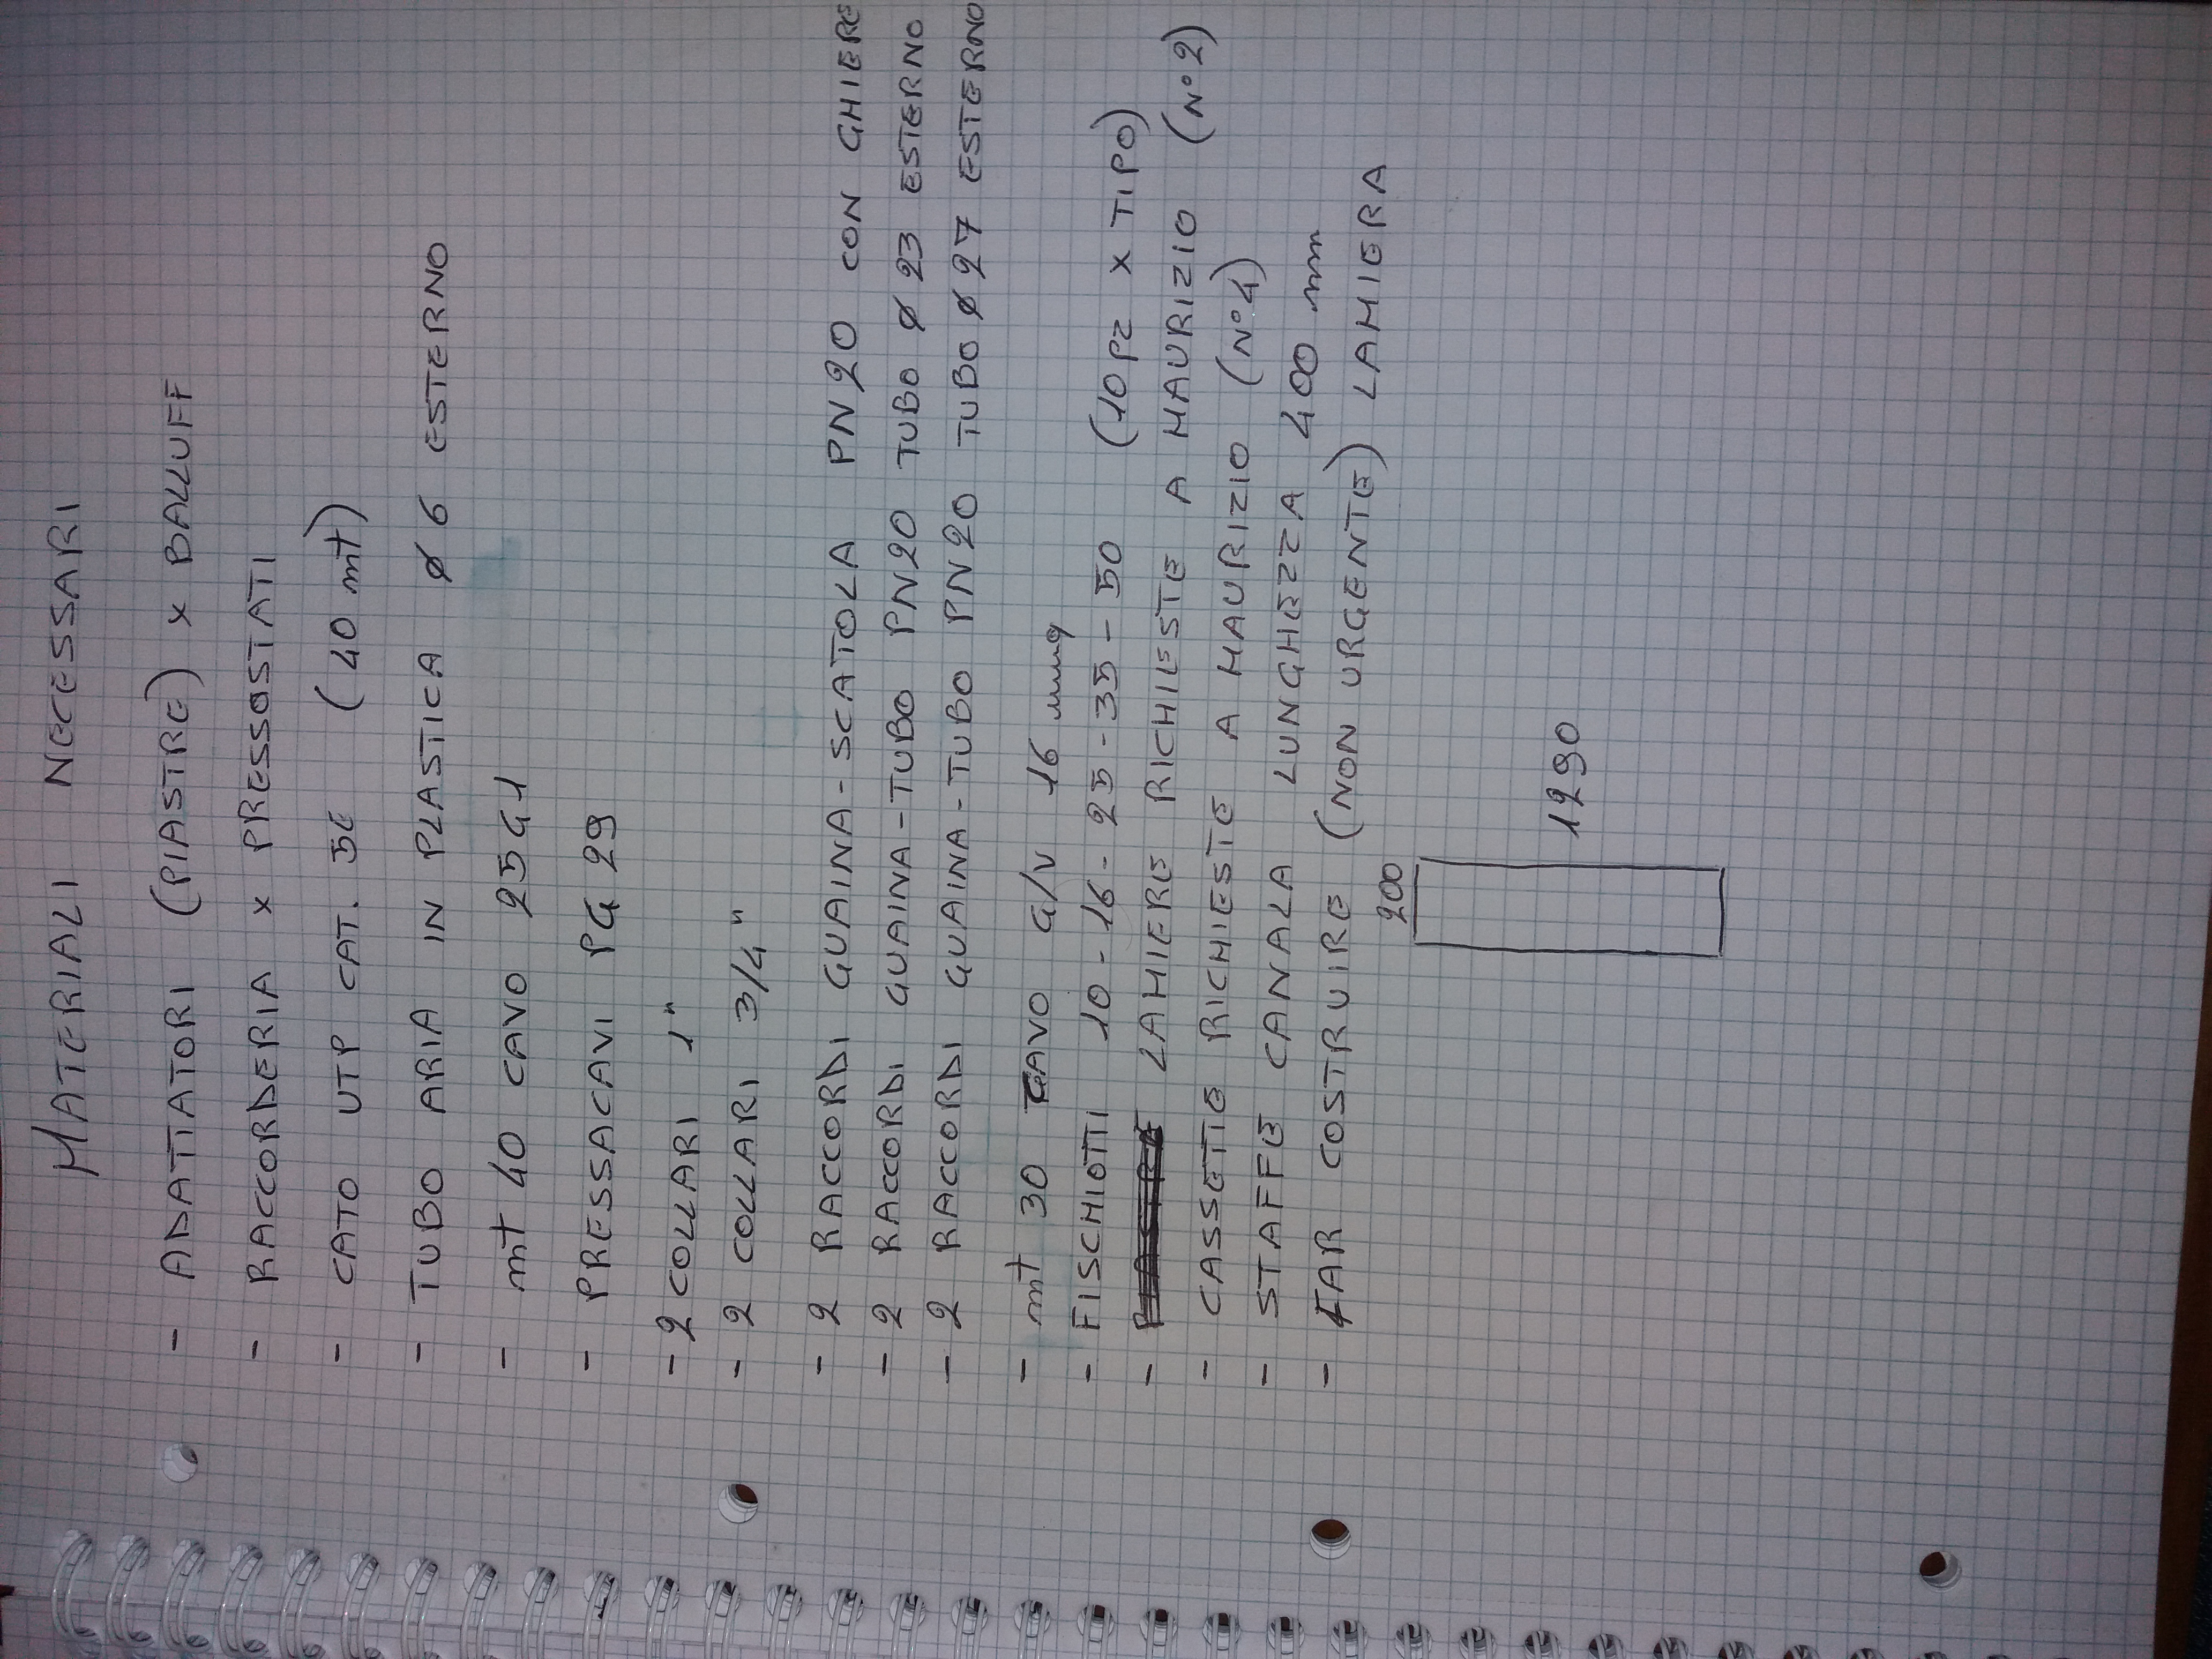 MATERIALI NECESSARI
- ADATTATORI (PIASTRE) x BALLUFF
- RACCORDERIA x PRESSOSTATI
- CATO UTP CAT. 5E (40 mt)
- TUBO ARIA IN PLASTICA ø 6 ESTERNO
- mt 40 CAVO 25G1
- PRESSACAVI PG 29
- 2 COLLARI 1"
- 2 COLLARI 3/4"
- 2 RACCORDI GUAINA-SCATOLA PN20 CON GHIERE
- 2 RACCORDI GUAINA-TUBO PN20 TUBO ø 23 ESTERNO
- 2 RACCORDI GUAINA-TUBO PN20 TUBO ø 27 ESTERNO
- mt 30 CAVO G/V 16 mmq
- FISCHIOTTI 10-16-25-35-50 (10 PZ x TIPO)
- LAMIERE RICHIESTE A MAURIZIO (N°2)
- CASSETTE RICHIESTE A MAURIZIO (N°4)
- STAFFE CANALA LUNGHEZZA 400 mm
- FAR COSTRUIRE (NON URGENTE) LAMIERA
200
1290